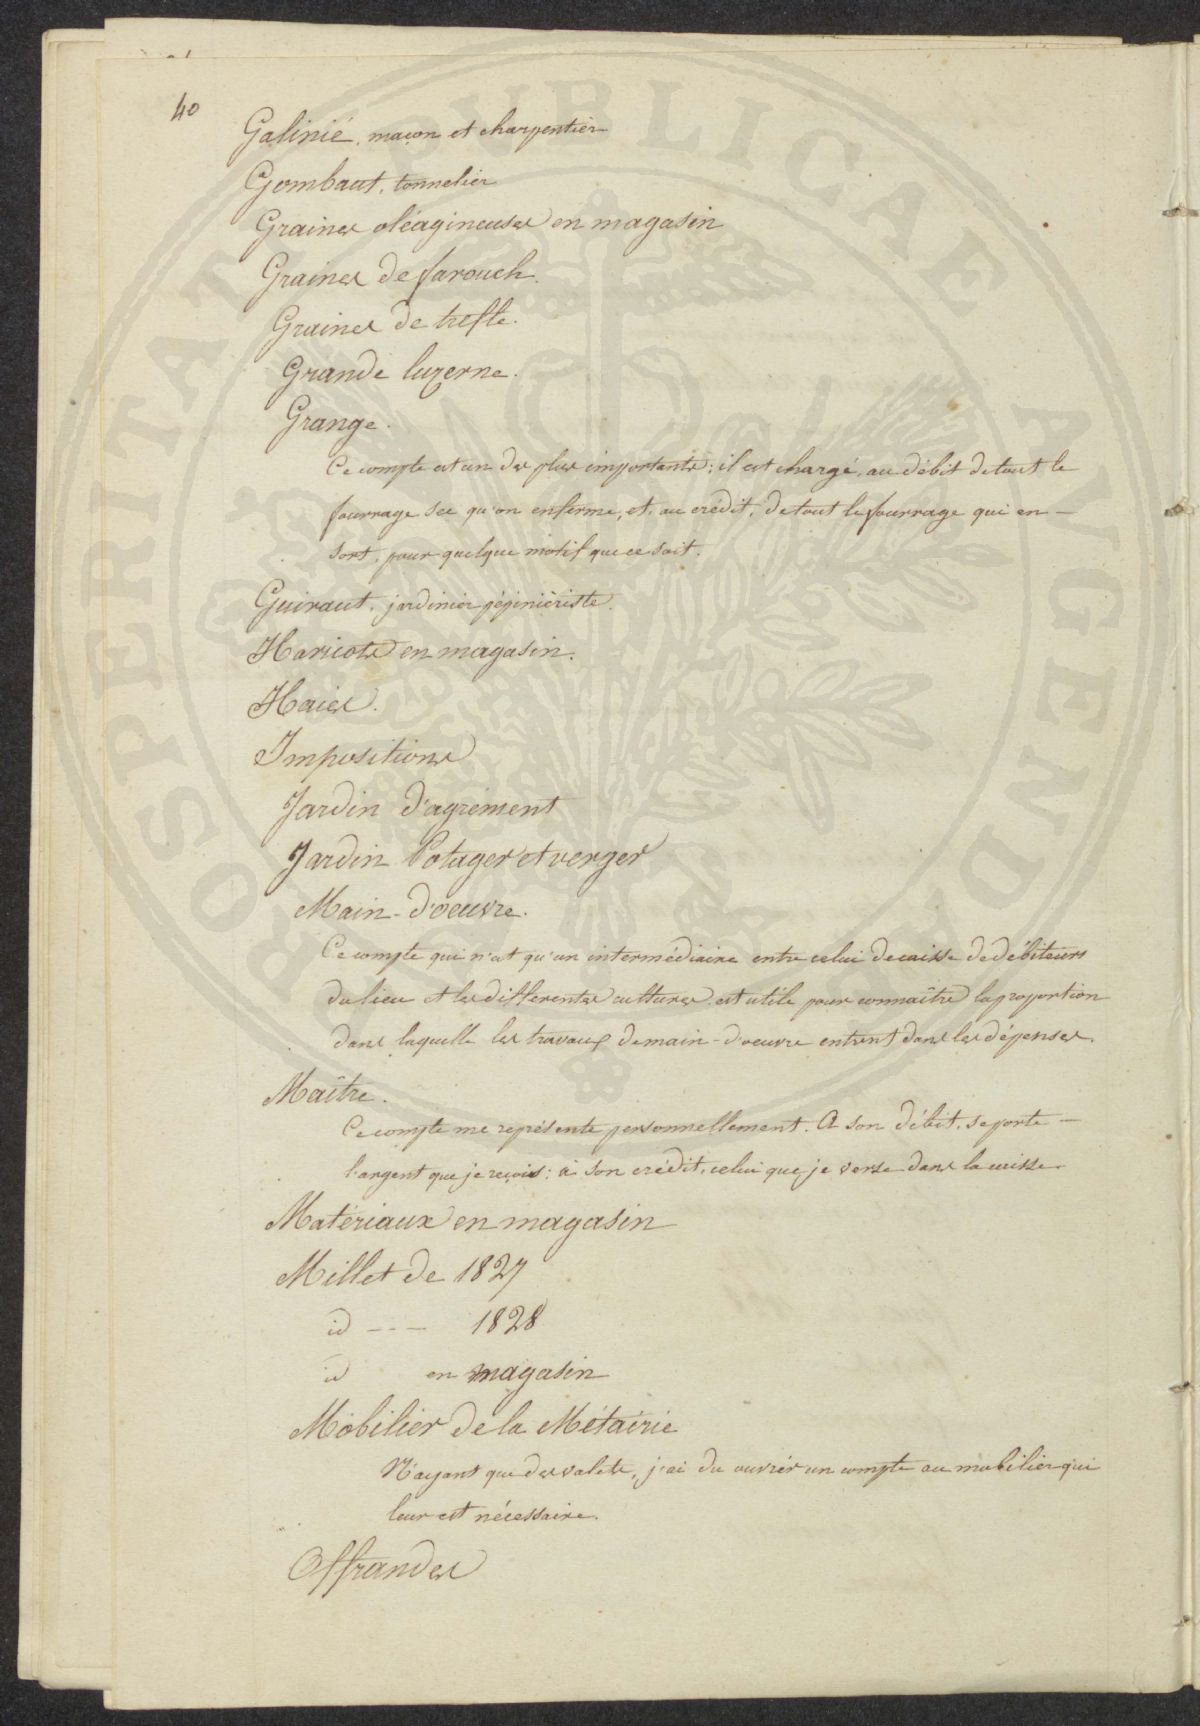 40
Galinié, maçon et charpentier
Gombaut, tonnelier
Graines oléagineuses en magasin
Graines de farouch.
Graines de trefle.
Grande luzerne.
Grange.
Ce compte est un des plus importants; il est chargé, au débit de tout le
fourrage sec qu'on enferme, et, au crédit, de tout le fourrage qui en
sort, pour quelque motif que ce soit.
Guiraut, jardinier pépiniériste.
Haricots en magasin.
Haies.
Impositions
Jardin d'agrément
Jardin Potager et verger
Main-d'oeuvre.
Ce compte qui n'est qu'un intermédiaire entre celui de caisse de débiteurs
du lieu et les differentes cultures est utile pour connaître la proportion
dans laquelle les travaux de main-d'oeuvre entrent dans les dépenses.
Maître.
Ce compte me représente personnellement. A son débit, se porte
l'argent que je reçois; à son crédit, celui que je verse dans la caisse.
Matériaux en magasin
Millet de 1827
id --- 1828
id en magasin
Mobilier de la Métairie
N'ayant que des valets, j'ai du ouvrir un compte au mobilier qui
leur est nécessaire.
Offrandes
PROSPERITATI PUBLICAE AUGENDAE